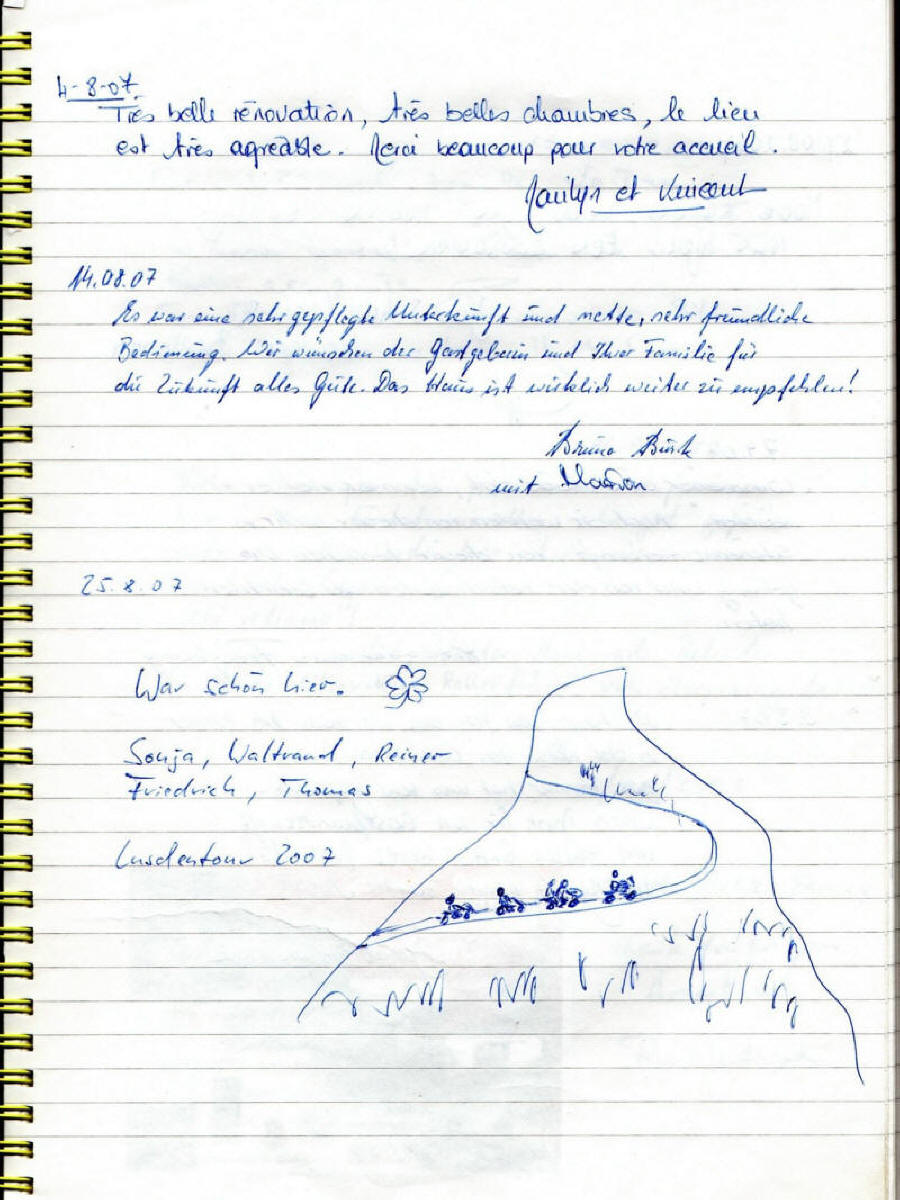 4-8-07.
Très belle rénovation, très belles chambres, le lieu
est très agréable. Merci beaucoup pour votre accueil.
Marilyn et Vincent
14.08.07
Es war eine sehr gepflegte Unterkunft und nette, sehr freundliche
Bedienung. Wir wünschen der Gastgeberin und Ihrer Familie für
die Zukunft alles Gute. Das Haus ist wirklich weiter zu empfehlen!
Bruno
mit Marion
25.8.07
War schön hier.
Sonja, Waltraud, Reiner
Friedrich, Thomas
2007